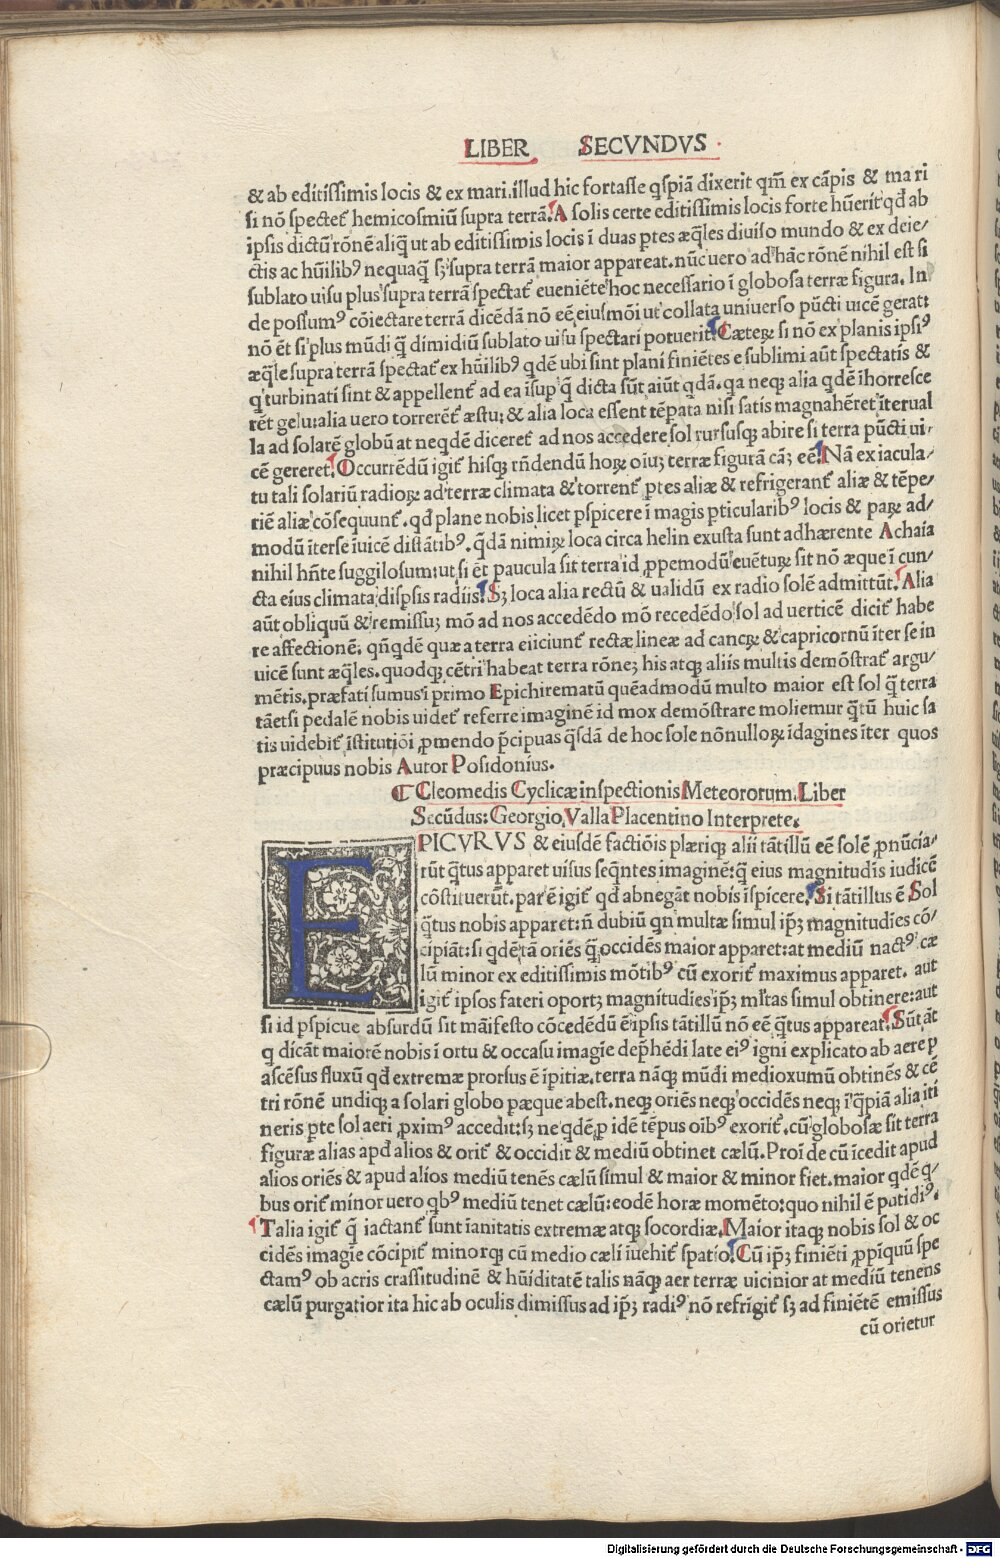 LIBER SECVNDVS
& ab editiſſimis locis & ex mari.illud hic fortaſſe qſpiā dixerit qm̄ ex cāpis & mari
ſi nō ſpectet̄ hemicoſmiū ſupra terrā. A ſolis certe editiſſimis locis forte hūerit qd̄ ab
ipſis dictū rōnē aliq̄ ut ab editiſſimis locis ī duas ptes æq̄les diuiſo mundo & ex deie/
ctis ac hūilibꝰ nequaq̄ ſꝫ ſupra terrā maior appareat.nūc uero ad hāc rōnē nihil eſt ſi
ſublato uiſu plus ſupra terrā ſpectat̄ eueniēte hoc neceſſario ī globoſa terræ figura. In
de poſſumꝰ cōiectare terrā dicēdā nō eē eiuſmōi ut collata uniuerſo pūcti uicē gerat:
nō ēt ſi plus mūdi q̄ dimidiū ſublato uiſu ſpectari potuerit. Cæteꝝ ſi nō ex planis ipſiꝰ
æq̄le ſupra terrā ſpectat̄ ex hūilibꝰ qdē ubi ſint plani finiētes e ſublimi aūt ſpectatis &
q turbinati ſint & appellent̄ ad ea iſup q̄ dicta ſūt aiūt qdā.qa neqꝫ alia qdē ihorreſce
rēt gelu:alia uero torrerēt æſtu: & alia loca eſſent tēpata niſi ſatis magna hēret īterual
la ad ſolarē globū at neqdē diceret̄ ad nos accedere ſol rurſuſqꝫ abire ſi terra pūcti ui/
cē gereret. Occurrēdū igit̄ hiſqꝫ rn̄dendū hoꝝ oiuꝫ terræ figurā cāꝫ eē. Nā ex iacula/
tu tali ſolariū radioꝝ ad terræ climata & torrent̄ ptes aliæ & refrigerant̄ aliæ & tēpe/
riē aliæ cōſequunt̄.qd̄ plane nobis licet pſpicere ī magis pticularibꝰ locis & paꝝ ad/
modū īterſe īuicē diſtātibꝰ. q̄dā nimiꝝ loca circa helin exuſta ſunt adhærente Achaia
nihil hn̄te ſuggiloſum:ut ſi ēt paucula ſit terra id ꝓpemodū euētuꝝ ſit nō æque ī cun/
cta eius climata diſpſis radiis. Sꝫ loca alia rectū & ualidū ex radio ſolē admittūt. Alia
aūt obliquū & remiſſuꝫ mō ad nos accedēdo mō recedēdo ſol ad uerticē dicit̄ habe
re affectionē: qn̄qdē quæ a terra eiiciunt̄ rectæ lineæ ad cancꝝ & capricornū īter ſe in
uicē ſunt æq̄les.quodqꝫ cētri habeat terra rōneꝫ his atqꝫ aliis multis demōſtrat̄ argu/
mētis.præfati ſumus ī primo Epichirematū quēadmodū multo maior eſt ſol q̄ terra
tāetſi pedalē nobis uidet̄ referre imaginē id mox demōſtrare moliemur q̄tū huic ſa
tis uidebit̄ īſtitutiōi ꝓmendo p̄cipuas q̄ſdā de hoc ſole nōnulloꝝ īdagines īter quos
præcipuus nobis Autor Poſidonius.
¶ Cleomedis Cyclicæ inſpectionis Meteororum Liber
Secūdus: Georgio Valla Placentino Interprete.
EPICVRVS & eiuſdē factiōis plæriqꝫ alii tātillū eē ſolē ꝓnūcia/
rūt q̄tus apparet uiſus ſeqn̄tes imaginē:q̄ eius magnitudis iudicē
cōſtituerūt.par ē igit̄ qd̄ abnegāt nobis īſpicere. Si tātillus ē Sol
q̄tus nobis apparet:n̄ dubiū qn multæ ſimul ipꝫ magnitudies cō/
cipiāt:ſi qdē tā oriēs q̄ occidēs maior apparet:at mediū nactꝰ cæ
lū minor ex editiſſimis mōtibꝰ cū exorit̄ maximus apparet. aut
igit̄ ipſos fateri oportꝫ magnitudies ipꝫ mltas ſimul obtinere:aut
ſi id pſpicue abſurdū ſit māifeſto cōcedēdū ē ipſis tātillū nō eē q̄tus appareat. Sūt āt
q dicāt maiorē nobis ī ortu & occaſu imagīe dep̄hēdi late eiꝰ igni explicato ab aere p
aſcēſus fluxū qd̄ extremæ prorſus ē īpitiæ.terra nāqꝫ mūdi medioxumū obtinēs & cē
tri rōnē undiqꝫ a ſolari globo pæque abeſt.neqꝫ oriēs neqꝫ occidēs neqꝫ ī qpiā alia iti
neris pte ſol aeri ꝓximꝰ accedit:ſꝫ ne qdē ꝑ idē tēpus oībꝰ exorit̄.cū globoſæ ſit terra
figuræ alias apd̄ alios & orit̄ & occidit & mediū obtinet cælū.Proīde cū īcedit apud
alios oriēs & apud alios mediū tenēs cælū ſimul & maior & minor fiet.maior qdē q/
bus orit̄ minor uero qbꝰ mediū tenet cælū:eodē horæ momēto:quo nihil ē putidiꝰ.
Talia igit̄ q̄ iactant̄ ſunt īanitatis extremæ atqꝫ ſocordiæ. Maior itaqꝫ nobis ſol & oc
cidēs imagīe cōcipit̄ minorqꝫ cū medio cæli īuehit̄ ſpatio. Cū ipꝫ finiēti ꝓpīquū ſpe
ctamꝰ ob aeris craſſitudinē & hūiditatē talis nāqꝫ aer terræ uicinior at mediū tenens
cælū purgatior ita hic ab oculis dimiſſus ad ipꝫ radiꝰ nō refrīgit̄ ſꝫ ad finiētē emiſſus
cū orietur
Digitalisierung gefördert durch die Deutsche Forschungsgemeinschaft - DFG